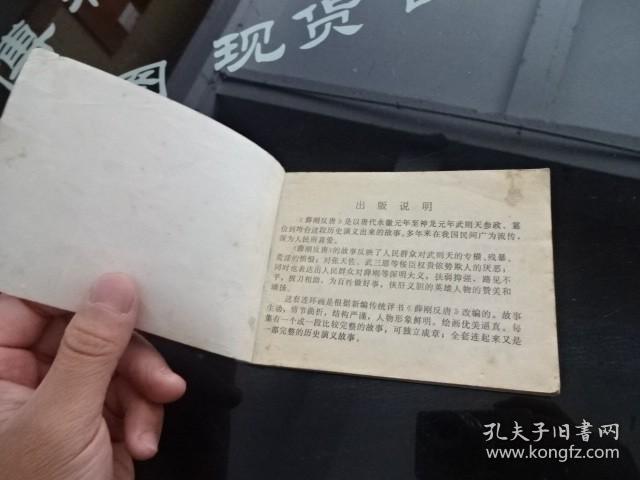 现货
出版说明
《薛刚反唐》是以唐代永徽元年至神龙元年武则天参政、篡
位到垮台这段历史演义出来的故事。多年来在我国民间广为流传，
深为人民所喜爱。
《薛刚反唐》的故事反映了人民群众对武则天的专横、残暴、
荒淫的愤恨；对张天佐、武三思等佞臣权贵依势欺人的厌恶；
同时也表达出人民群众对薛刚等深明大义，扶弱抑强，路见不
平，拔刀相助，为百姓做好事，侠肝义胆的英雄人物的赞美和
颂扬。
这套连环画是根据新编传统评书《薛刚反唐》改编的。故事
生动，情节曲折，结构严谨，人物形象鲜明。绘画优美逼真。每
集有一个或一段比较完整的故事，可独立成章；全套连起来又是
一部完整的历史演义故事。
孔夫子旧书网
www.kongfz.com